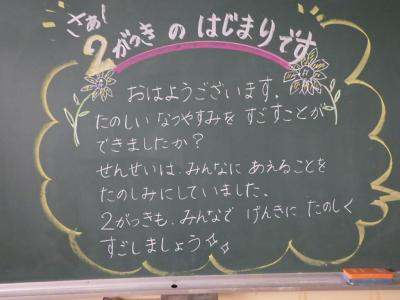 さぁ!
2がっき の はじまりです
おはようございます。
たのしい なつやすみを すごすことが
できましたか?
せんせいは、みんなに あえることを
たのしみにしていました。
2がっきも、みんなで げんきに たのしく
すごしましょう